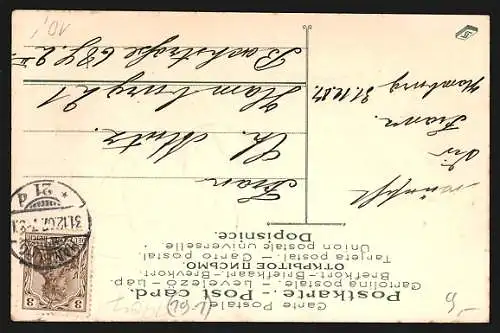 Carte Postale
Postkarte. - Post card.
Cartolina postale - Levelező-Lap.
Briefkort - Briefkaart - Brevkort.
ОТКРЫТОЕ ПИСЬМО.
Tarjeta postal. - Carto postal.
Union postale universelle.
Dopisnice.
(191)
Frau
Ch. Mutz.
Hamburg 21
Bachstraße 68 I
Hamburg 31.12.07.
Franz.
Dir
wünscht
31.12.07. 7-8
21
3
3
10,
9,-